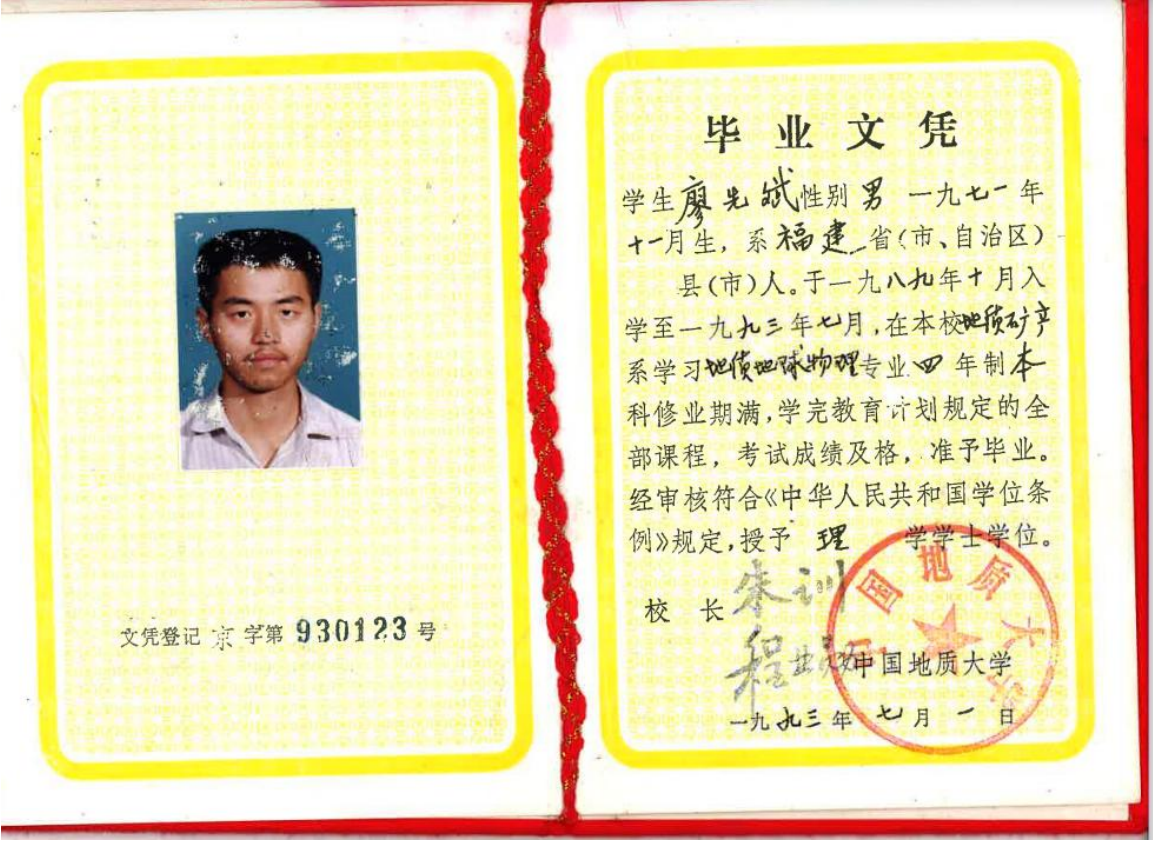 文凭登记 京 字第 930123 号
毕业文凭
学生廖先斌性别 男 一九七一年
十一月生，系福建省(市、自治区)
县(市)人。于一九八九年十月入
学至一九九三年七月，在本校地质矿产
系学习地质地球物理专业四年制本
科修业期满，学完教育计划规定的全
部课程，考试成绩及格，准予毕业。
经审核符合《中华人民共和国学位条
例》规定，授予 理 学学士学位。
校 长 朱训
程业勋
中国地质大学
一九九三年七月一日
中国地质大学